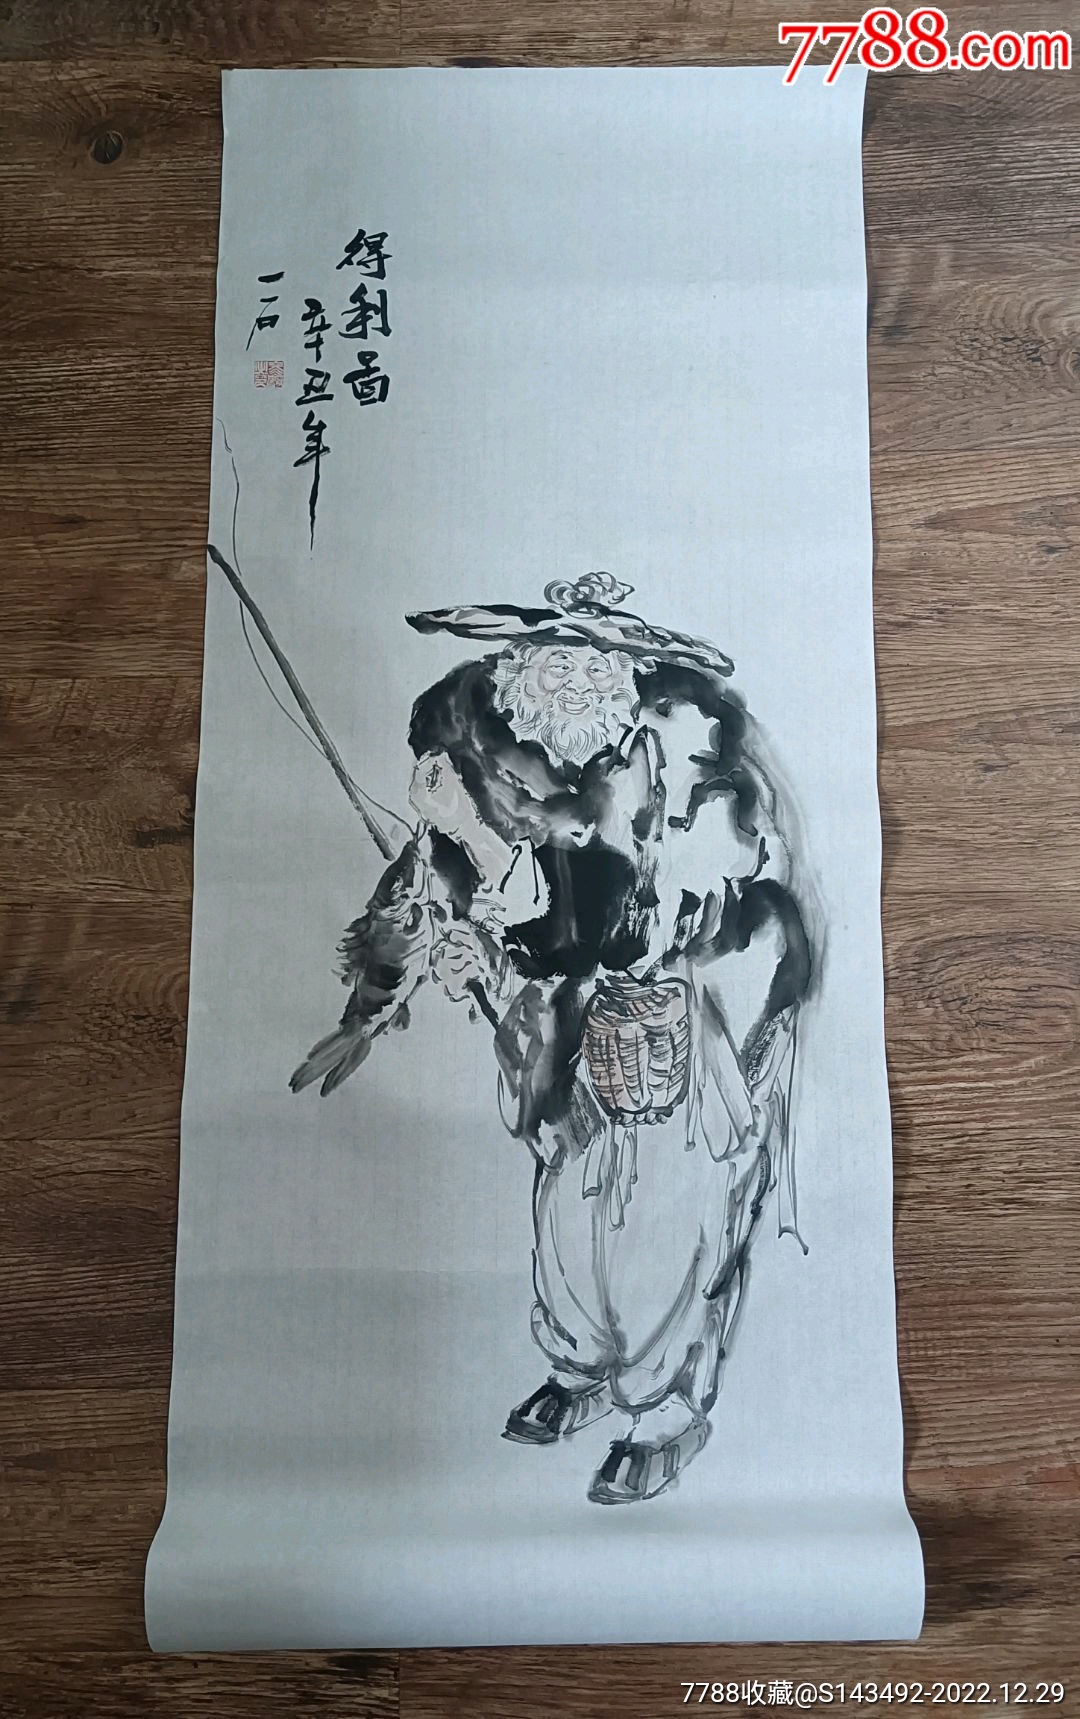 7788.com
得利啚
辛丑年
一石
7788收藏@S143492-2022.12.29